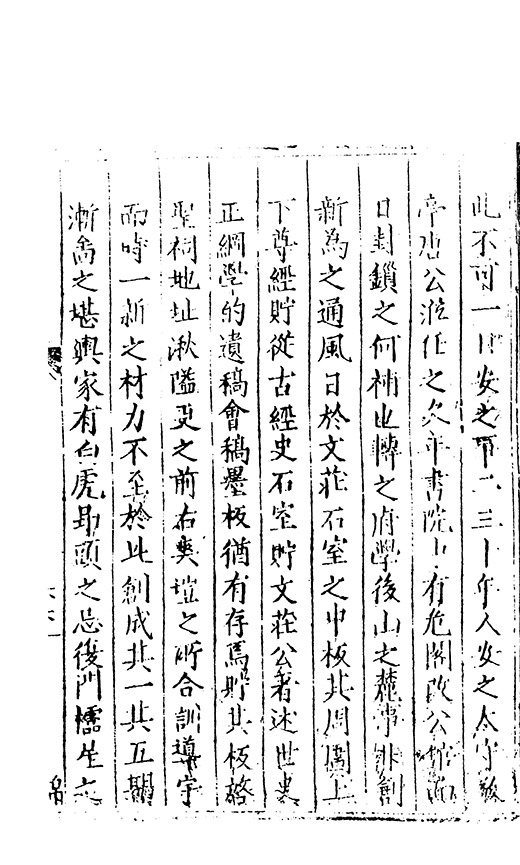 此不可一日安之而二三十年人安之太守敬
亭唐公涖任之次年書院山有危閣改公館而
日封鎖之何補也轉之府學後山之麓常非創
新為之通風日於文莊石室之中板其周圍上
下尊經貯從古經史石室貯文莊公著述世史
正綱學的遺稿會稿墨板猶有存焉貯其板啓
聖祠地址湫隘更之前右爽塏之所合訓導宇
而時一新之材力不至於此創成其一共五閣
漸禽之堪輿家有白虎昂頭之忌後門櫺生